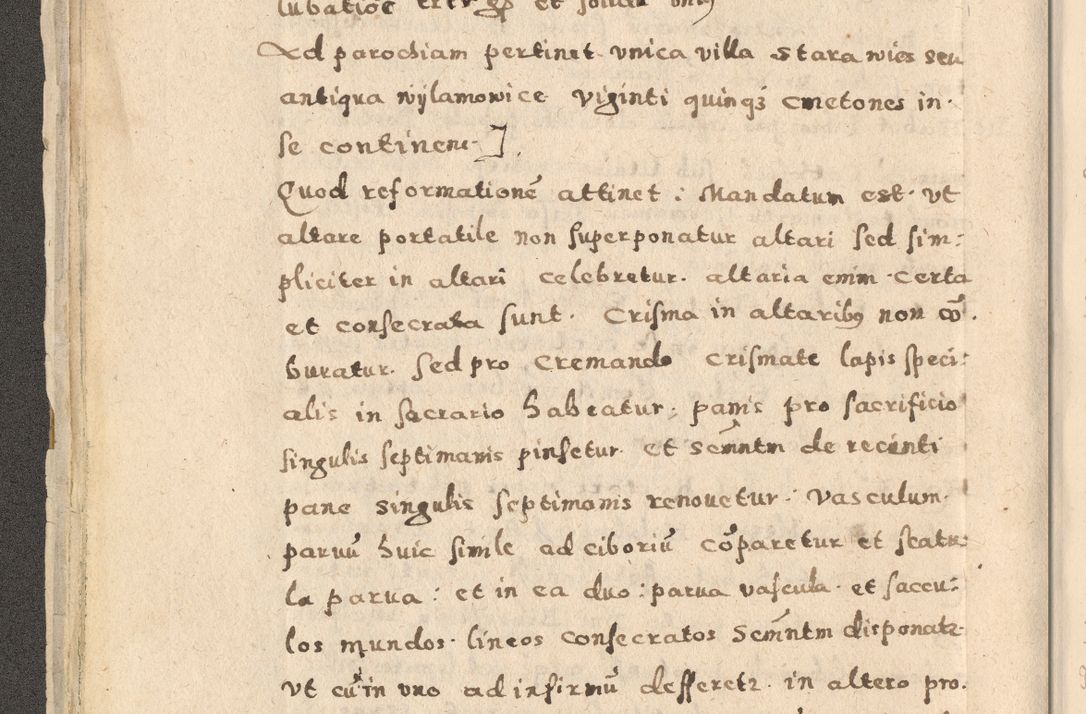 Ad parochiam pertinet vnica villa Stara wies seu
antiqua wylamowice viginti quinqȝ cmetones in
se continent ].
Quod reformationē attinet : Mandatum est vt
altare portatile non superponatur altari sed sim:
pliciter in altari celebretur. altaria enim certa
et consecrata sunt. Crisma in altaribȝ non cō
buratur. sed pro cremando crismate lapis speci:
alis in sacrario habeatur, panis pro sacrificio
singulis septimanis pinsetur et Sēmntm de recenti
pane singulis septimanis renouetur. Vasculum
paruū huic simile ad ciboriū cōparetur et scatu:
la parua : et in ea duo : parua vascula et saccu:
los mundos lineos consecratos Sēmntm disponatr
vt cū in vno ad infirmū defferetr in altero pro.